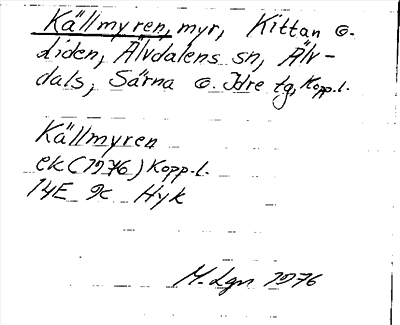 Källmyren, myr, Kittan o.
Liden, Älvdalens sn, Älv-
dals, Särna o. Idre tg, Kopp.l.
Källmyren
ek (1976) Kopp.l.
14E 9c Hyk
M. Lgn 1976